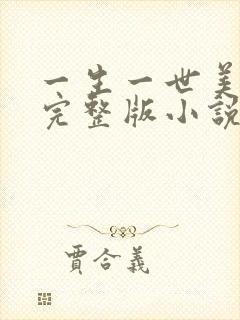 一生一世美
完整版小說
賈合義